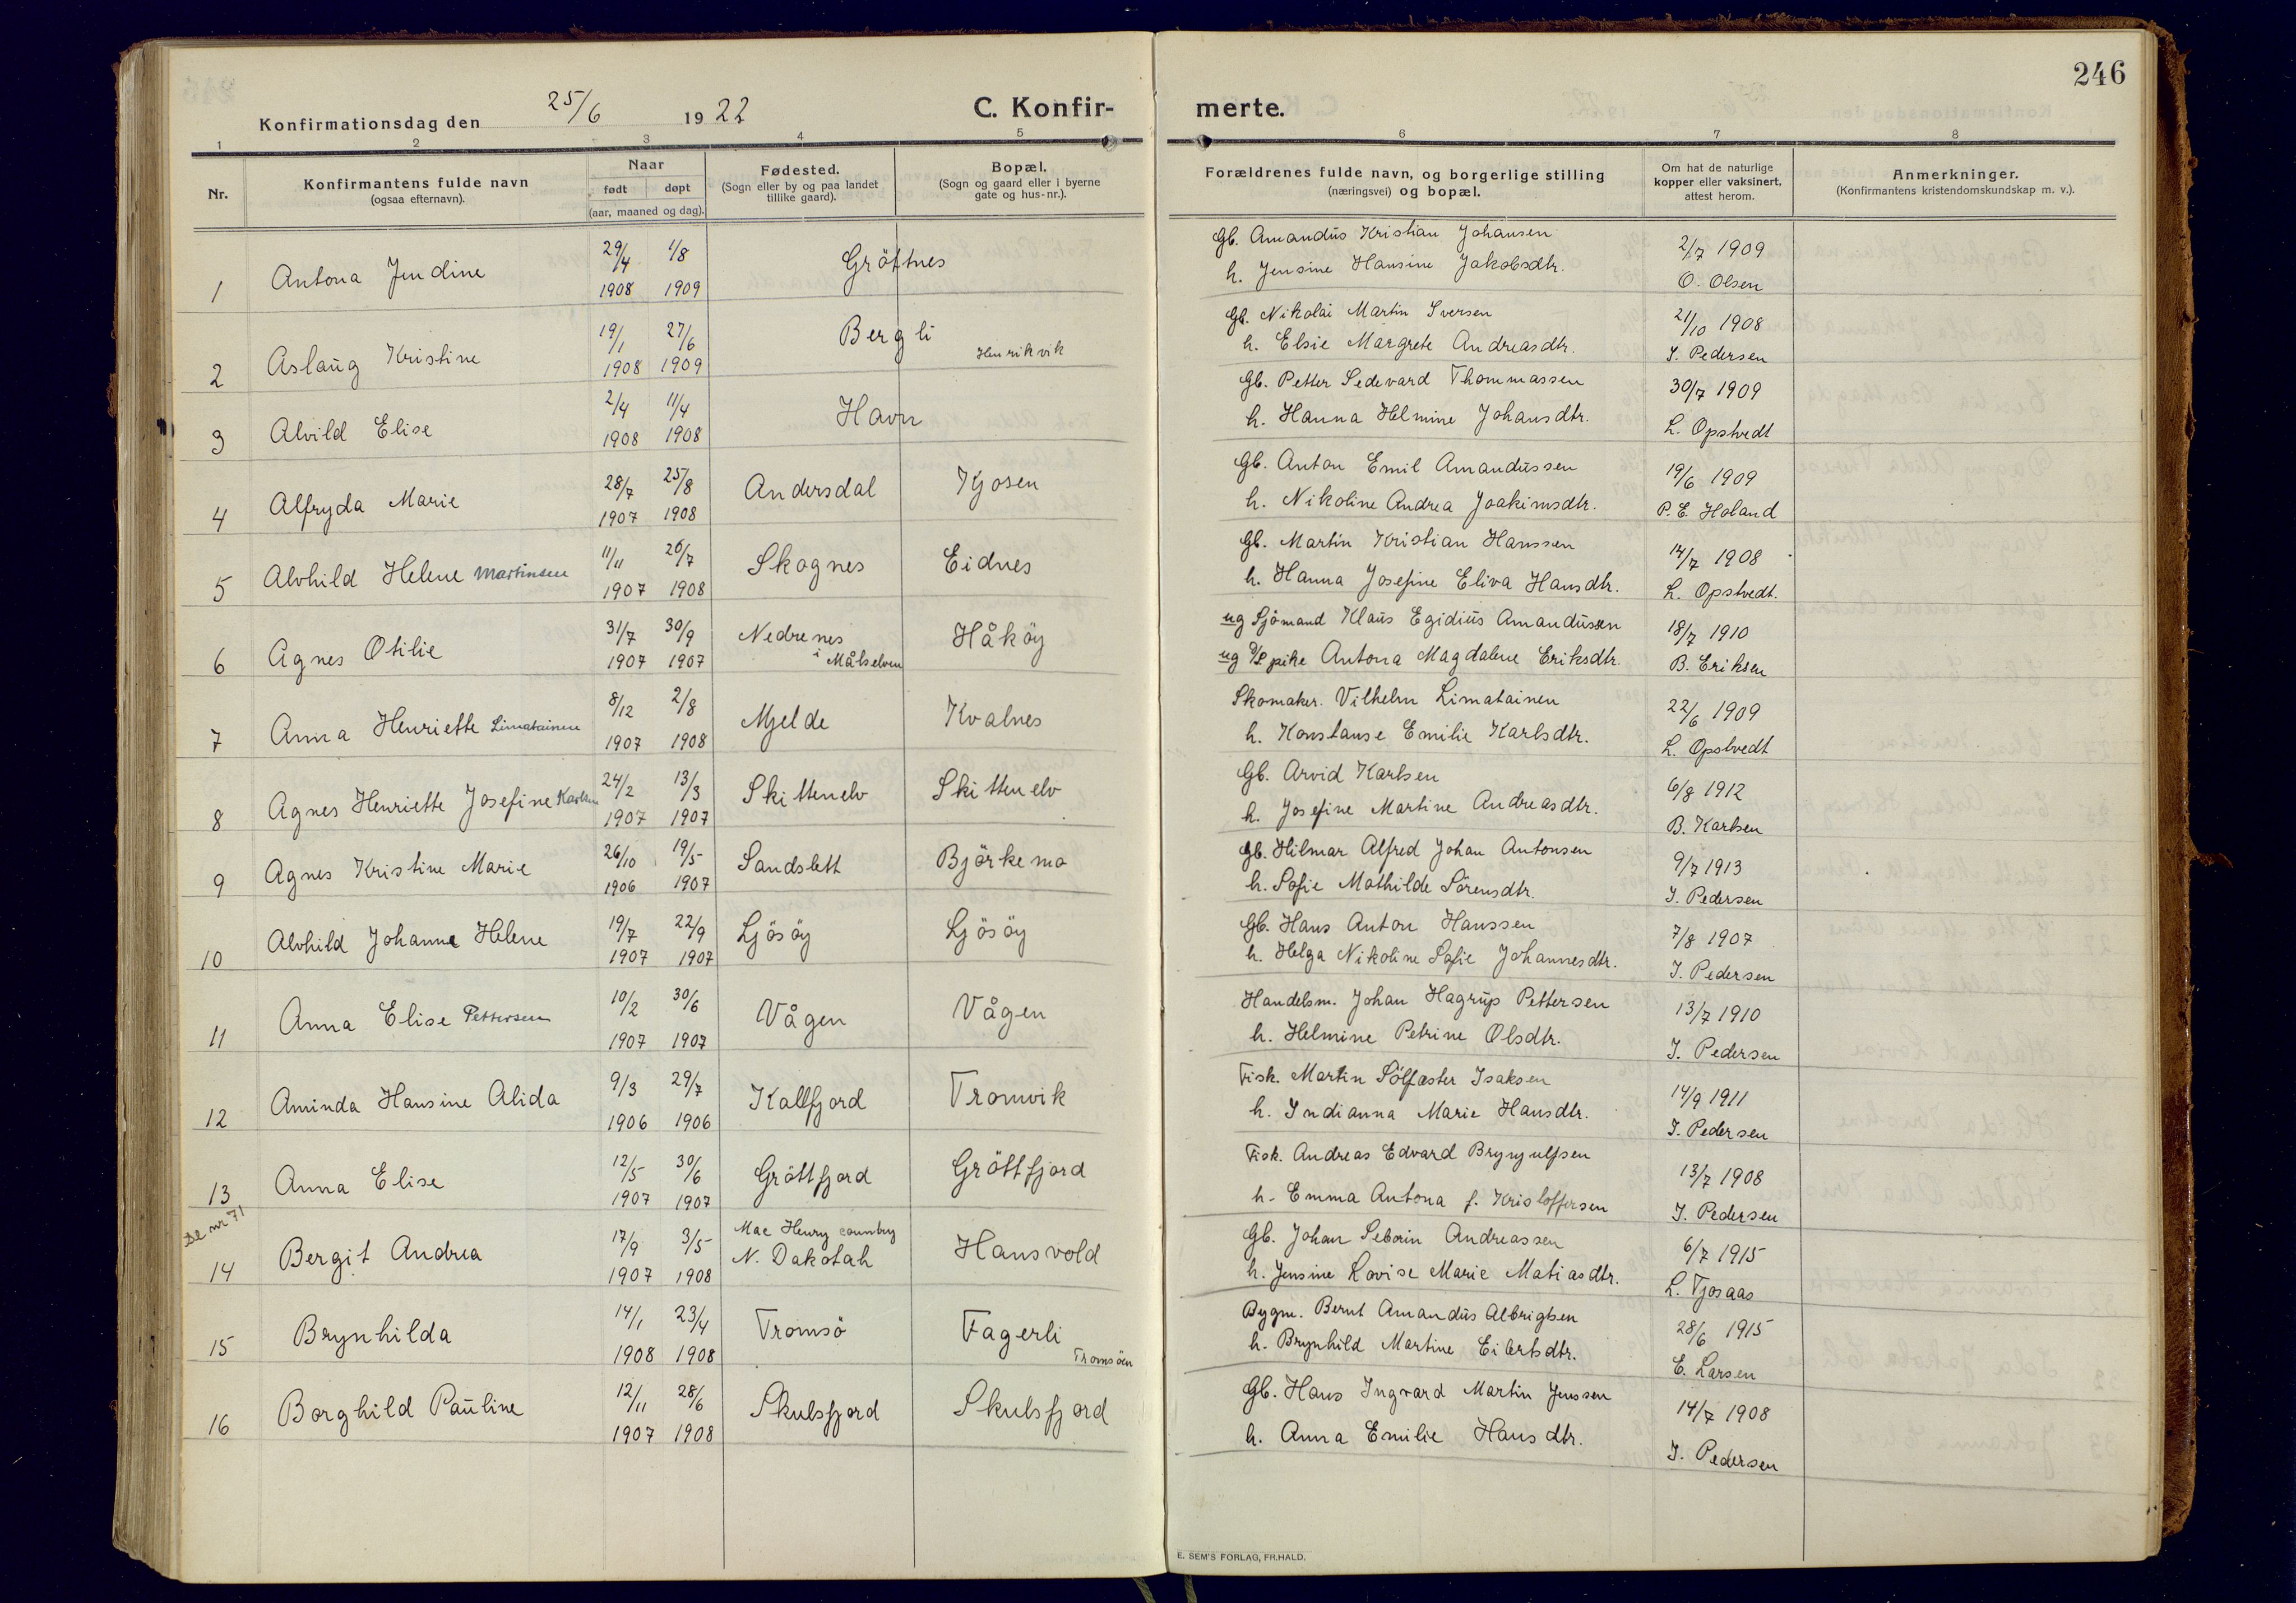 246
Konfirmationsdag den 25/6 1922 C. Konfir- merte.
1 2 3 4 5 6 7 8
Nr. Konfirmantens fulde navn (ogsaa efternavn). Naar født døpt (aar, maaned og dag). Fødested. (Sogn eller by og paa landet tillike gaard). Bopæl. (Sogn og gaard eller i byerne gate og hus-nr.). Forældrenes fulde navn, og borgerlige stilling (næringsvei) og bopæl. Om hat de naturlige kopper eller vaksinert, attest herom. Anmerkninger. (Konfirmantens kristendomskundskap m. v.).
1 Antona Jendine 29/4 1908 1/8 1909 Gröftnes Gb. Amandus Kristian Johansen 2/7 1909
h. Jensine Hansine Jakobsdtr. O. Olsen
2 Aslaug Kristine 19/1 1908 27/6 1909 Bergli Henrikvik Gb. Nikolai Martin Iversen 21/10 1908
h. Elsie Margrete Andreasdtr. I. Pedersen
3 Alvild Elise 2/4 1908 11/4 1908 Havn Gb. Petter Sedevard Thommassen 30/7 1909
h. Hanna Helmine Johansdtr. L. Opstvedt
4 Alfryda Marie 28/7 1907 25/8 1908 Andersdal Kjosen Gb. Anton Emil Amandussen 19/6 1909
h. Nikoline Andrea Joakimsdtr. P. E. Holand
5 Alvhild Helene Martinsen 11/11 1907 26/7 1908 Skognes Eidnes Gb. Martin Kristian Hanssen 14/7 1908
h. Hanna Josefine Eliva Hansdtr. L. Opstvedt.
6 Agnes Otilie 31/7 1907 30/9 1907 Nedrenes i Målselven Håköy ug Sjömand Klaus Egidius Amandussen 18/7 1910
ug pike Antona Magdalene Eriksdtr. B. Eriksen
7 Anna Henriette Limatainen 8/12 1907 2/8 1908 Mjelde Kvalnes Skomaker. Vilhelm Limatainen 22/6 1909
h. Konstanse Emilie Karlsdtr. L. Opstvedt
8 Agnes Henriette Josefine Karlsen 24/2 1907 13/3 1907 Skittenelv Skittenelv Gb. Arvid Karlsen 6/8 1912
h. Josefine Martine Andreasdtr. B. Karlsen
9 Agnes Kristine Marie 26/10 1906 19/5 1907 Sandslett Björkemo Gb. Hilmar Alfred Johan Antonsen 9/7 1913
h. Sofie Mathilde Sörensdtr. I. Pedersen
10 Alvhild Johanne Helene 19/7 1907 22/9 1907 Ljösöy Ljösöy Gb. Hans Anton Hanssen 7/8 1907
h. Helga Nikoline Sofie Johannesdtr. I. Pedersen
11 Anna Elise Pettersen 10/2 1907 30/6 1907 Vågen Vågen Handelsm. Johan Hagrup Pettersen 13/7 1910
h. Helmine Petrine Olsdtr. I. Pedersen
12 Aminda Hansine Alida 9/3 1906 29/7 1906 Kallfjord Tromvik Fisk. Martin Sölfæster Isaksen 14/9 1911
h. Indianna Marie Hansdtr. I. Pedersen
13 Anna Elise 12/5 1907 30/6 1907 Gröttfjord Gröttfjord Fisk. Andreas Edvard Brynjulfsen 13/7 1908
h. Emma Antona f. Kristoffersen I. Pedersen
Se nr 71
14 Bergit Andrea 17/9 1907 3/5 1908 Mac Henry country N. Dakotah Hansvold Gb. Johan Seberin Andreassen 6/7 1915
h. Jensine Lovise Marie Matiasdtr. L. Tjosaas
15 Brynhilda 14/1 1908 23/4 1908 Tromsö Fagerli Tromsöen Bygm. Bernt Amandus Albrigtsen 28/6 1915
h. Brynhild Martine Eilertsdtr. E. Larsen
16 Borghild Pauline 12/11 1907 28/6 1908 Skulsfjord Skulsfjord Gb. Hans Ingvard Martin Jenssen 14/7 1908
h. Anna Emilie Hansdtr. I. Pedersen
E. SEM'S FORLAG, FR.HALD.